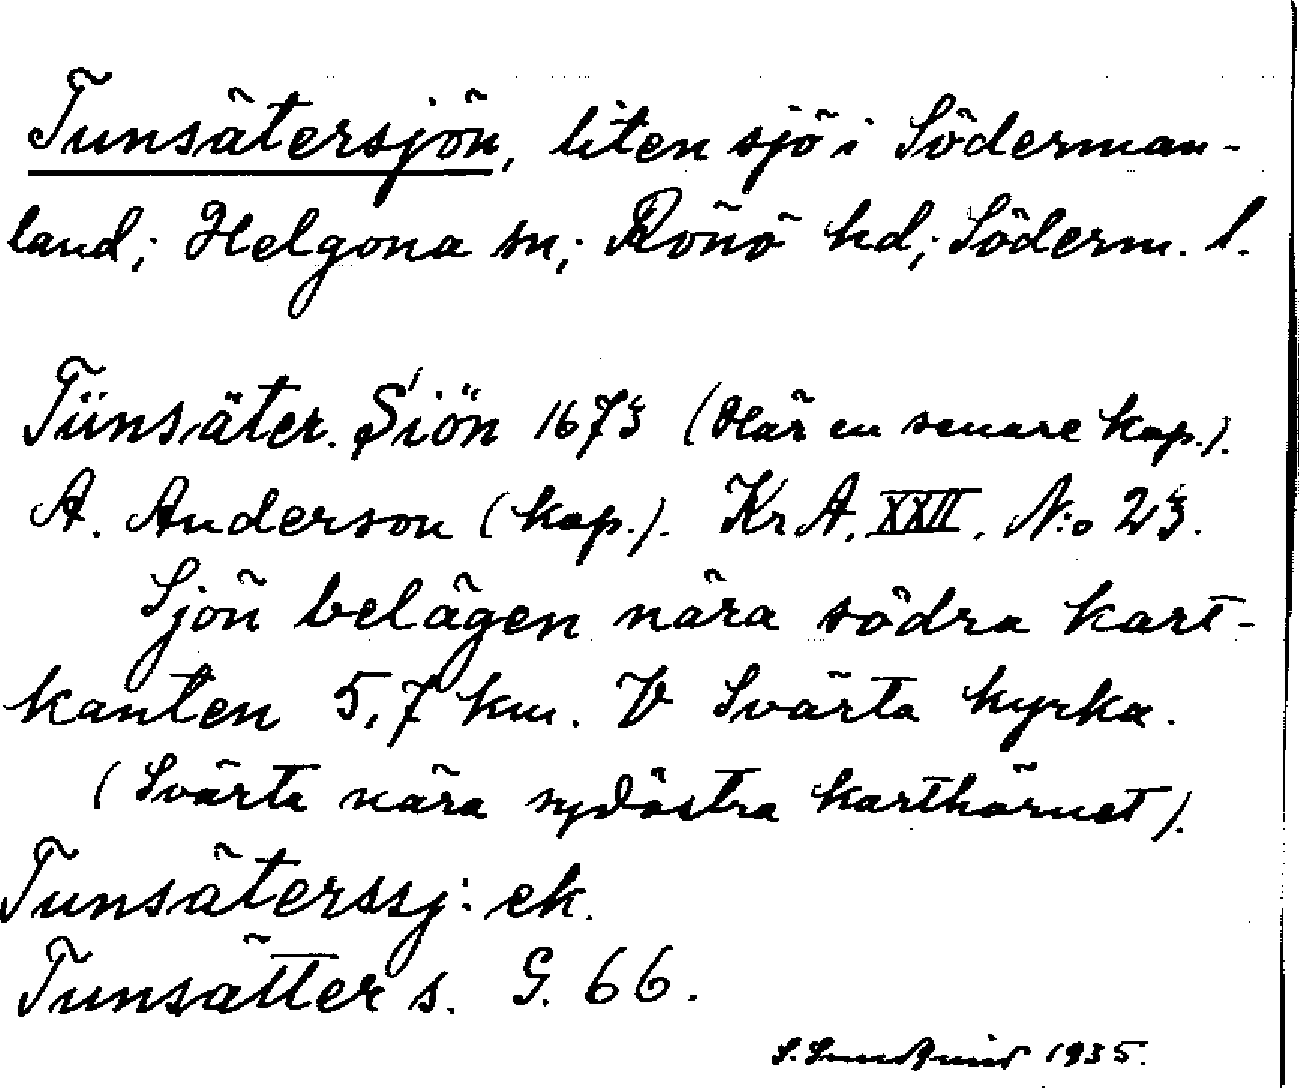 Tunsätersjön, liten sjö i Söderman-
land; Helgona sn; Rönö hd; Söderm. l.
Tünsäter. Siön 1673 (Här en senare kop.).
A. Anderson (kop.). Kr. A. XXII. N:o 23.
Sjön belägen nära södra kart-
kanten 5,7 km. V Svärta kyrka.
(Svärta nära sydöstra karthörnet).
Tunsäterssj: ek.
Tunsätter s. G. 66.
S. 1935.